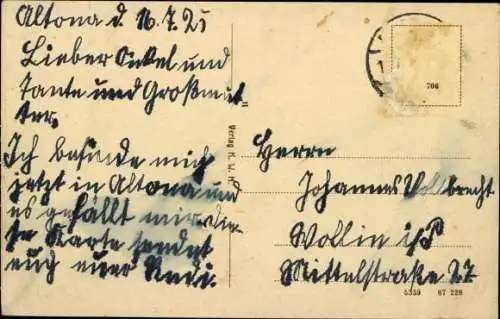 Altona d. 16.7.25
Lieber Onkel und
Tante und Großmut
ter.
Ich befinde mich
jetzt in Altona und
es gefällt mir. die
se Karte sendet
eug euer Rudi.
Verlag K. u. H.
706
Herrn
Johannes Vollbrecht
Wollin i/P
Mittelstraße 27
5359 67 228